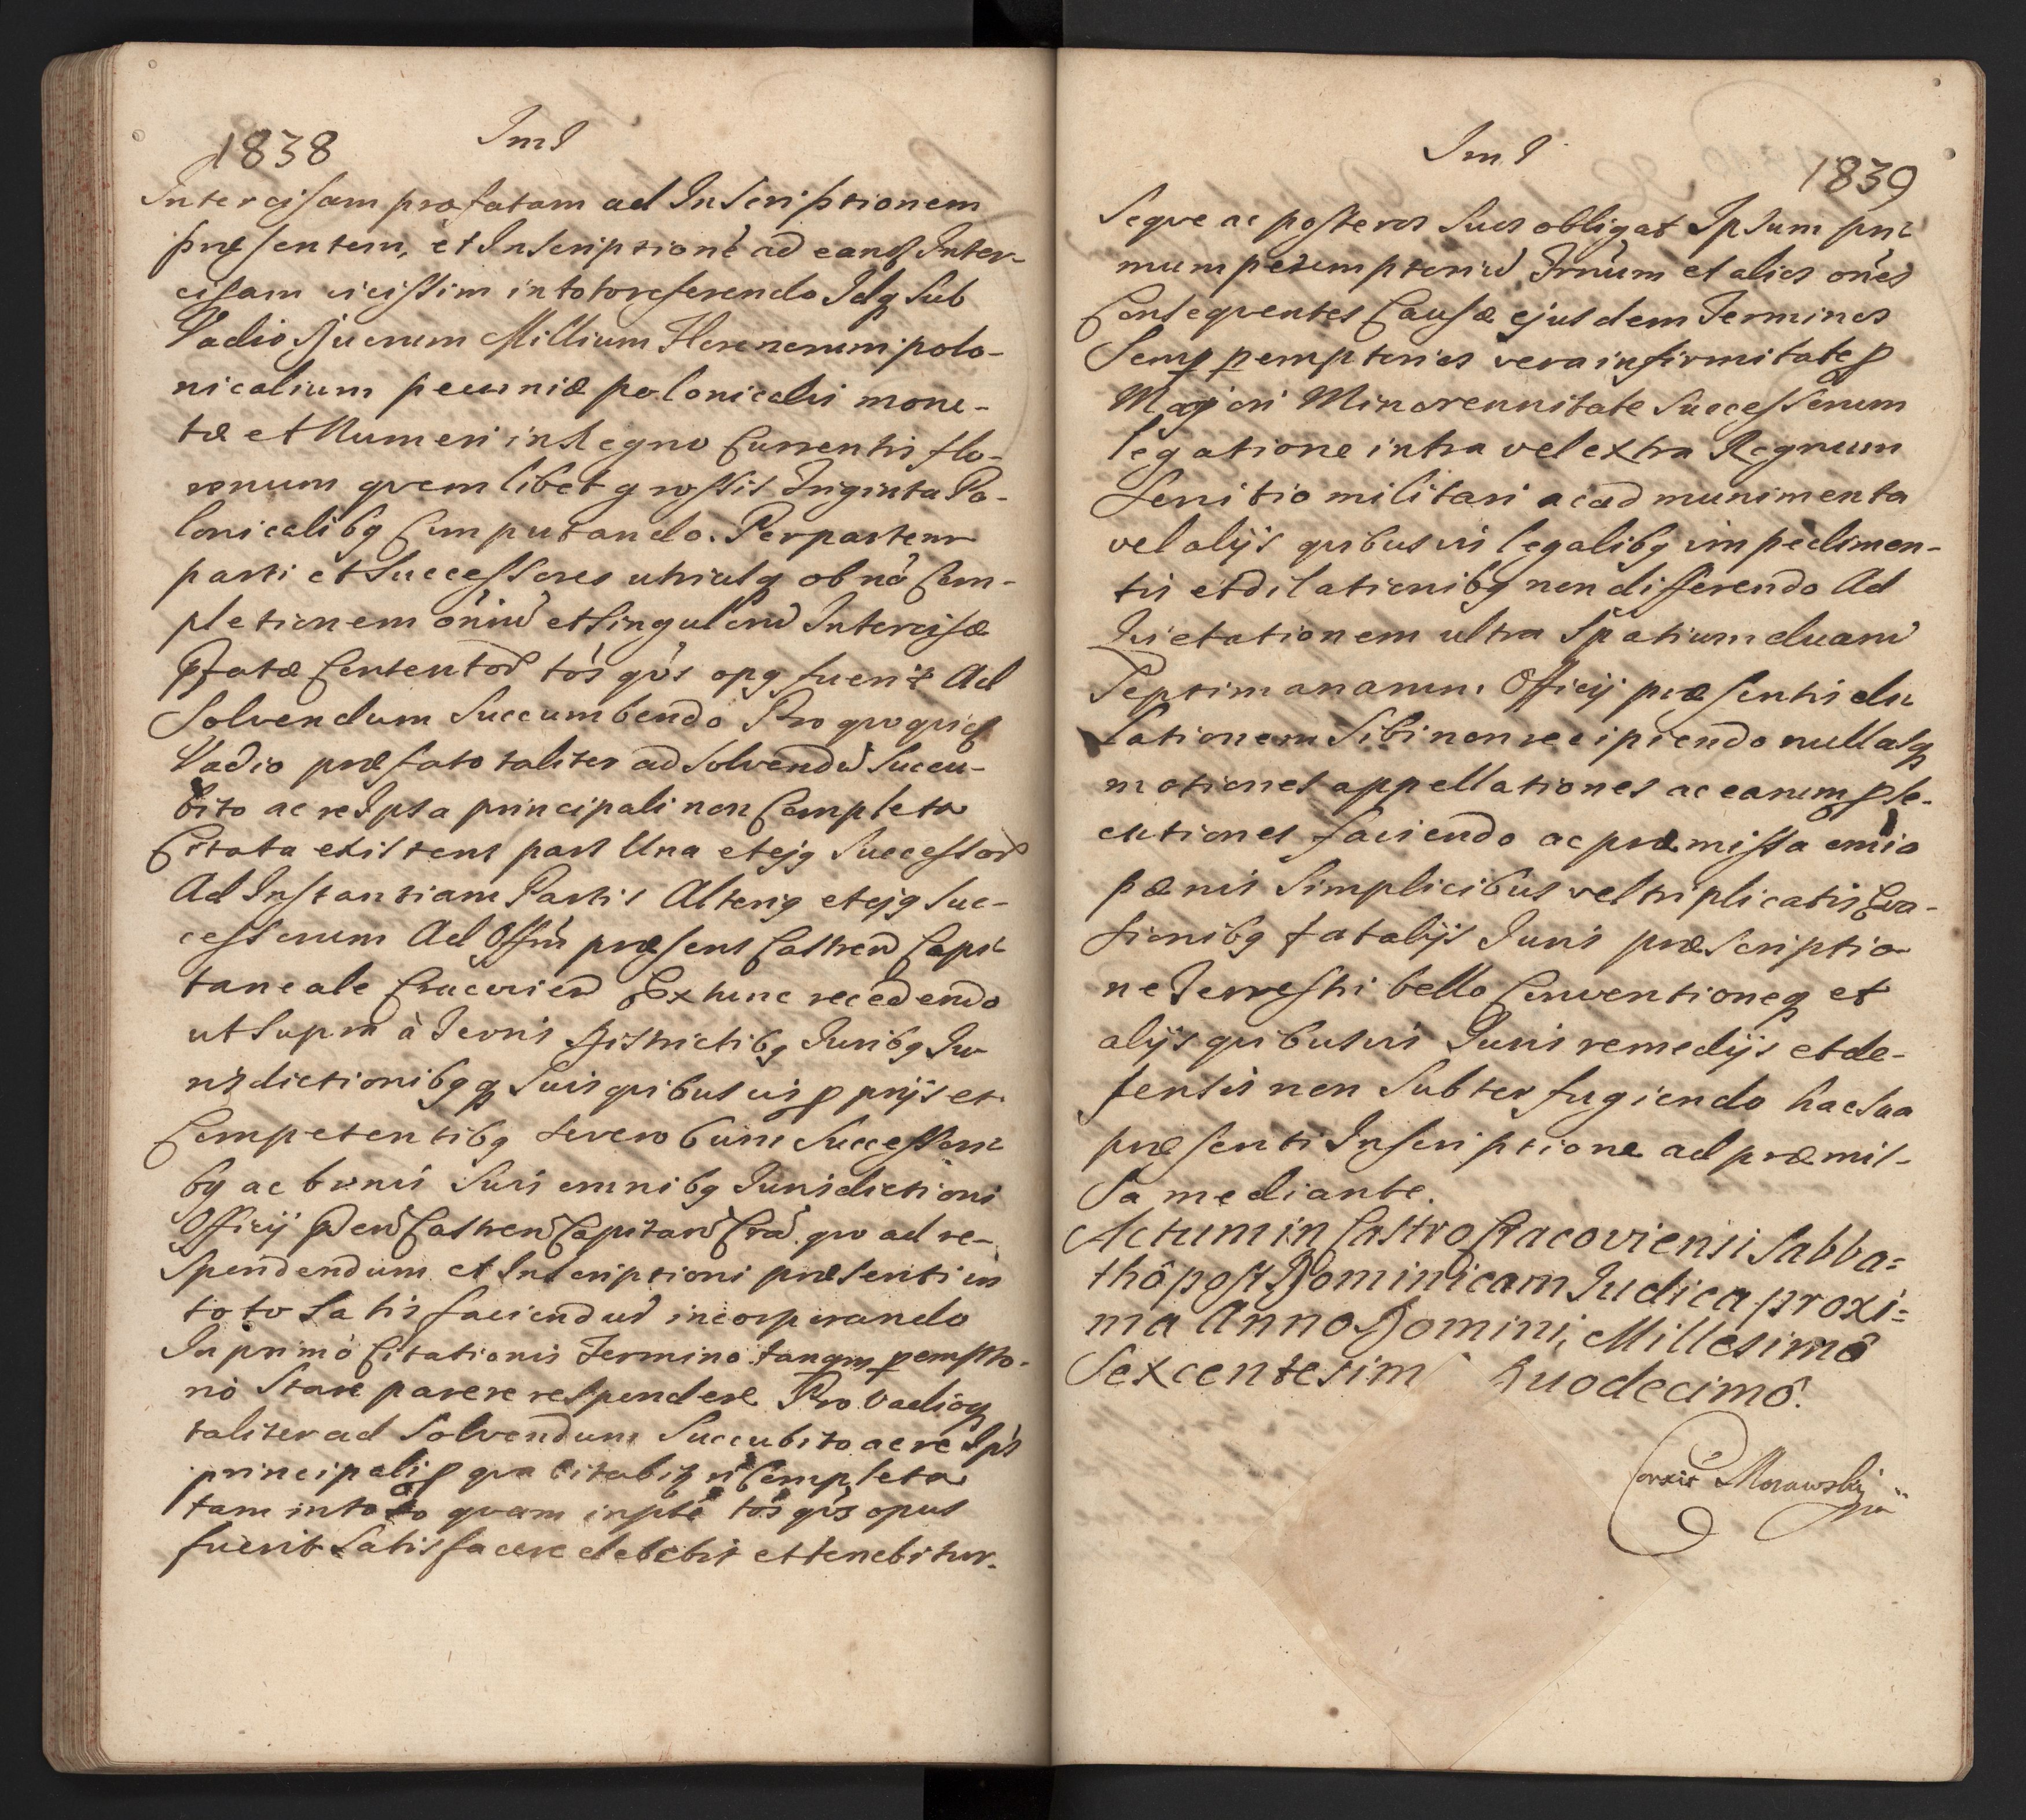 1838
Iml
Intercisam præfatam ad Inscriptionem
præsentem, et Inscriptionē ad eandē Inter-
cisam vicissim in toto referendo Idq́ Sub
Vadio Duorum Millium Florenorum polo-
nicalium pecuniæ polonicalis mone-
tæ et Numeri in Regno Currentis flo-
renum quemlibet grossis Triginta Po-
lonicalibq Computando. Per partem
parti et Successores utriusq ob nō Com-
pletionem oniū et Singulorū Intercisæ
Pfatæ Contentor̄ tōs qūs opq fuerit Ad
Solvendum Succumbendo Pro quoquidē
Vadio præfato taliter ad Solvendū Succu-
bito ac re Ipsa principali non Completa
Citata existens pars Una et ejq Successor̄
Ad Instantiam Partis Alterig et ejq Suc-
cessorum Ad Offm̄ præsens Castren̄ Capi-
taneale Cracovien̄ Ex tunc recedendo
ut Supra à Terris Districtibq Juribq Ju-
risdictionibq q Suis quibusvis pprijs et
Competentibq se vero bona Successori-
bq ac bonis Suis omnibq Jurisdictioni
Officij Pñ Castren̄ Capitan̄ Cra. quo ad re-
spondendum et Inscriptioni præsenti in
toto Satisfaciendū incorporando
In primo Citationis Termino tanqm pempto-
rio Stare parere respondere Pro Vadioq
taliter ad Solvendum Succubito ac re Ipsā
principali p qua Citabit ñ Completa
tam in toto quam in pte tōs qūs opus
fuerit Satisfacere debebit et tenebitur.
Iml
1839
Seque ac posteros Suos obligat Ipsum pri-
mum peremptoriū Trnum et alios ones
Consequentes Causæ ejusdem Terminos
Semp pemptorios vera infirmitate p
Majori Minorennitate Successorum
legatione intra vel extra Regnum
Servitio militari ac ad munimenta
vel alijs quibusvis legalibq impedimen-
tis et dilationibq non differendo Ad
Quietationem ultra Spatium duarū
Septimanarum Officij præsentis di-
lationem Sibi non recipiendo nullasq
motiones appellationes ac earum pse-
cutiones faciendo ac præmissa omīa
pænis Simplicibus vel triplicatis Eva-
sionibq fatalijs Juris præscriptio-
ne Terrestri bello Conventioneq et
alijs quibusvis Juris remedijs et de-
fensis non Subterfugiendo hac Sua
præsenti Inscriptione ad præmis-
sa mediante.
Actum in Castro Cracoviensi Sabba=
thô post Dominicam Judica proxi=
ma Anno Domini, Millesimô
Sexcentesim Duodecimô.
Correxit Morawski